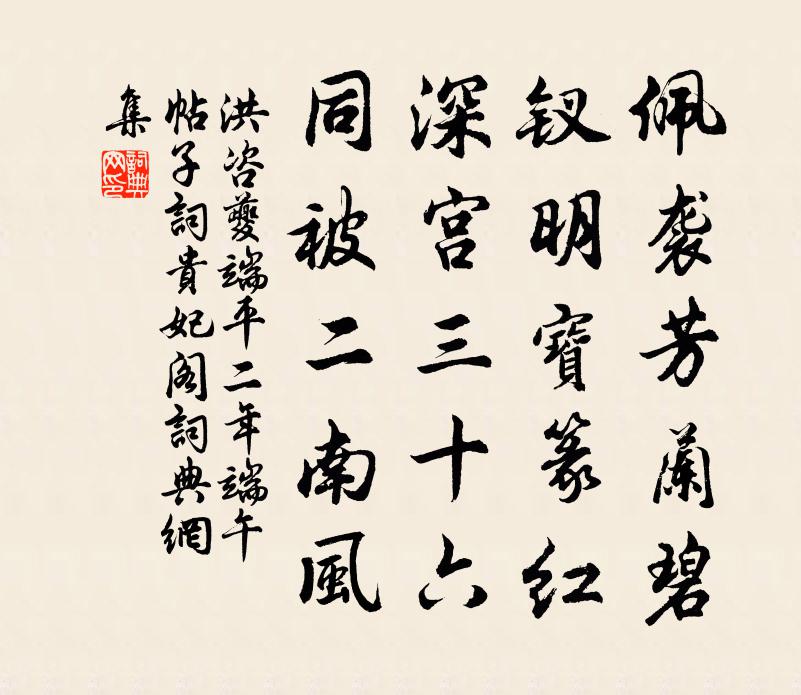 佩袭芳蘭碧
钗明寶篆红
深宫三十六
同被二南風
洪咨夔端平二年端午
帖子詞貴妃阁詞典網
集
詞典
网印